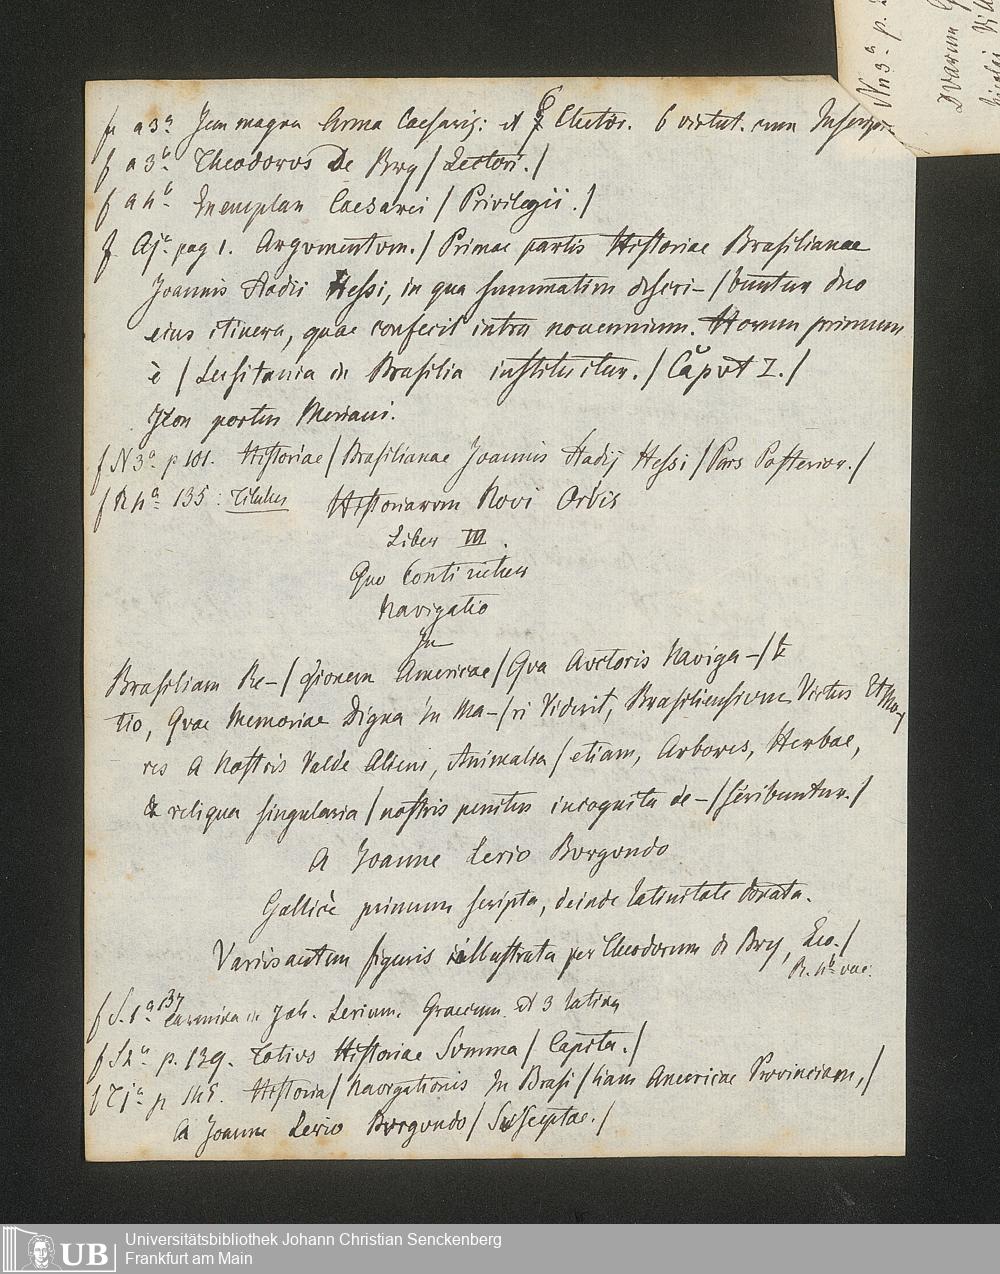 f a3ᵃ Jcon magna Arma Caesaris: et Elector. 6 virtut. cum Inscript.
f a3ᵇ Theodorvs De Bry / Lectori. /
f a4ᵇ Exemplar Caesarei / Privilegii. /
f Ajᵃ pag 1. Argvmentvm. / Primae partis Historiae Brasilianae
Joannis Stadii Hessi, in qua summatim descri- / buntur duo
eius itinera, quae confecit intra nouennium. Horum primum
è / Lusitania in Brasilia instituitur. / Capvt I. /
Jcon portus
f N3ᵃ p 101. Historiae / Brasilianae Joannis Stadij Hessi / Pars Posterior. /
f R4ᵃ 135: Titulus Historiarvm Novi Orbis
Liber III.
Quo Continetur
Navigatio
In
Brasiliam Re- / gionem Americae / Qva Avctoris Naviga- /
tio, Qvae Memoriae Digna In Ma- / ri Viderit, Brasiliensivm Victus Et Mo-
res A Nostris Valde Alieni, Animalia / etiam, Arbores, Herbae,
& reliqua singularia / nostris penitus incognita de- / scribuntur. /
A Joanne Lerio Bvrgvndo
Gallicè primum scripta, deinde latinitate donata.
Variis autem figuris illustrata per Theodorum de Bry, Leo. /
R. 4ᵇ vac.
f S.1ᵃ 137 Carmina in Joh. Lerium. Graecum et 3 latina
f S2ᵃ p. 139. Totivs Historiae Svmma / Capita. /
f T1ᵃ p 145. Historia / Navigationis In Brasi / liam Americae Provinciam, /
A Joanne Lerio Bvrgvndo / Svsceptae. /
Nn3ᵃ p.
Dvarum
Universitätsbibliothek Johann Christian Senckenberg
Frankfurt am Main
UB